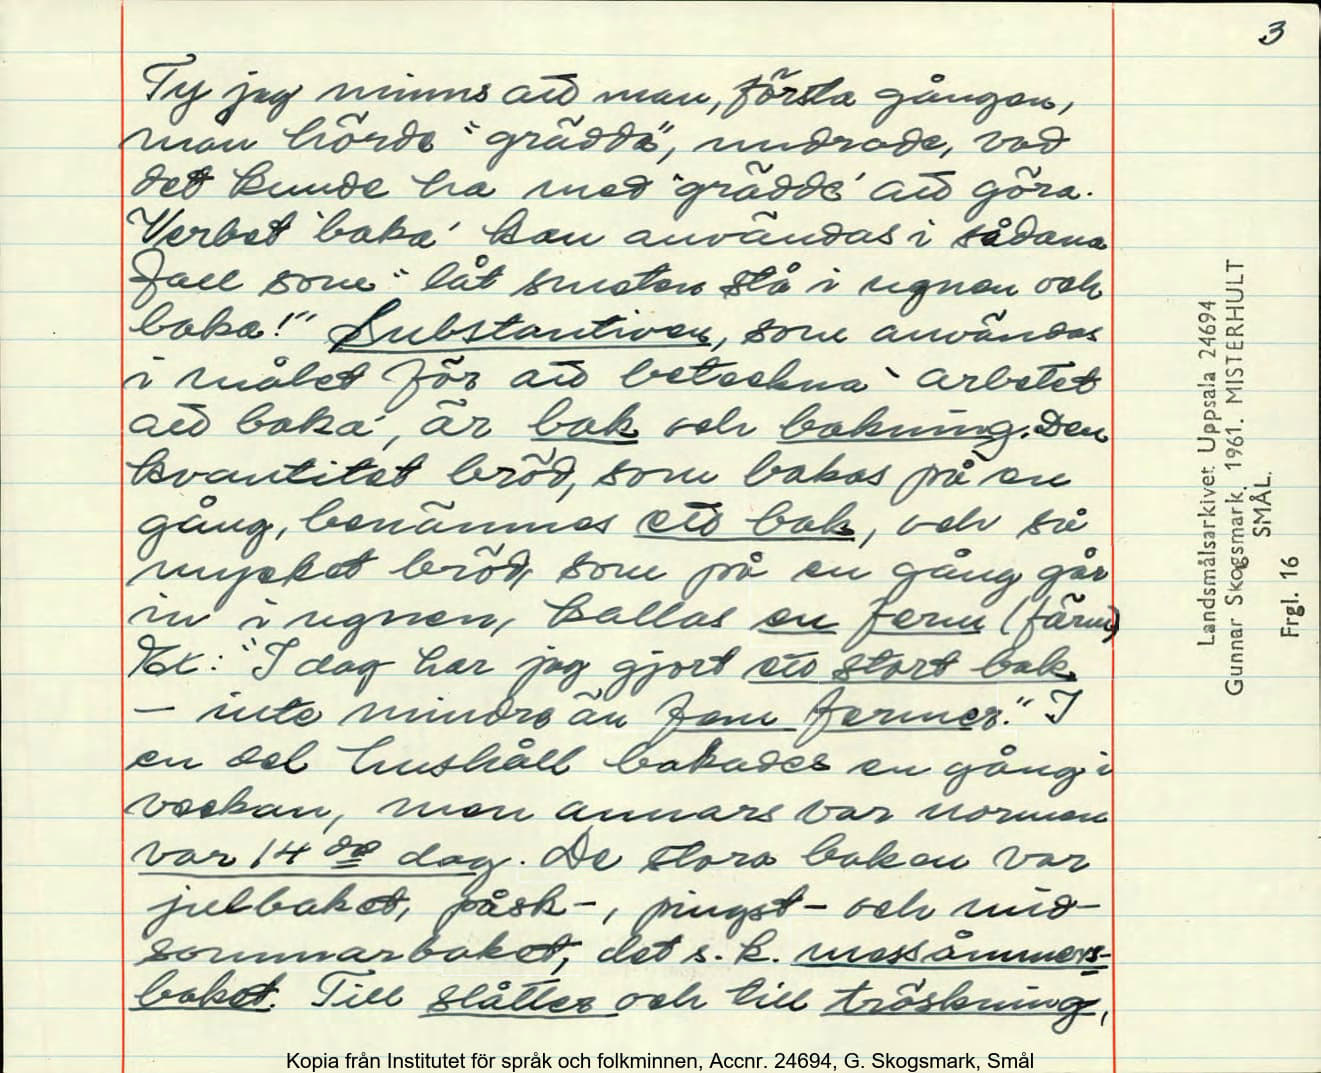 3
Ty jag minns att man, första gången,
man hörde "grädda", undrade, vad
det kunde ha med 'grädde' att göra.
Verbet 'baka' kan användas i sådana
fall som "låt smeten stå i ugnen och
baka!" Substantiven, som användas
i målet för att beteckna 'arbetet
att baka', är bak och bakning. Den
kvantitet bröd, som bakas på en
gång, benämnes ett bak, och så
mycket bröd, som på en gång går
in i ugnen, kallas en ferm (färm)
Ex: "I dag har jag gjort ett stort bak
– inte mindre än fem fermer." I
en del hushåll bakades en gång i
veckan, men annars var normen
var 14 de dag. De stora baken var
julbaket, påsk-, pingst- och mid-
sommarbaket, det s.k. messåmmers-
baket. Till slåtter och till tröskning,
Landsmålsarkivet. Uppsala 24694
Gunnar Skogsmark. 1961. MISTERHULT
SMÅL.
Frgl. 16
Kopia från Institutet för språk och folkminnen, Accnr. 24694, G. Skogsmark, Smål